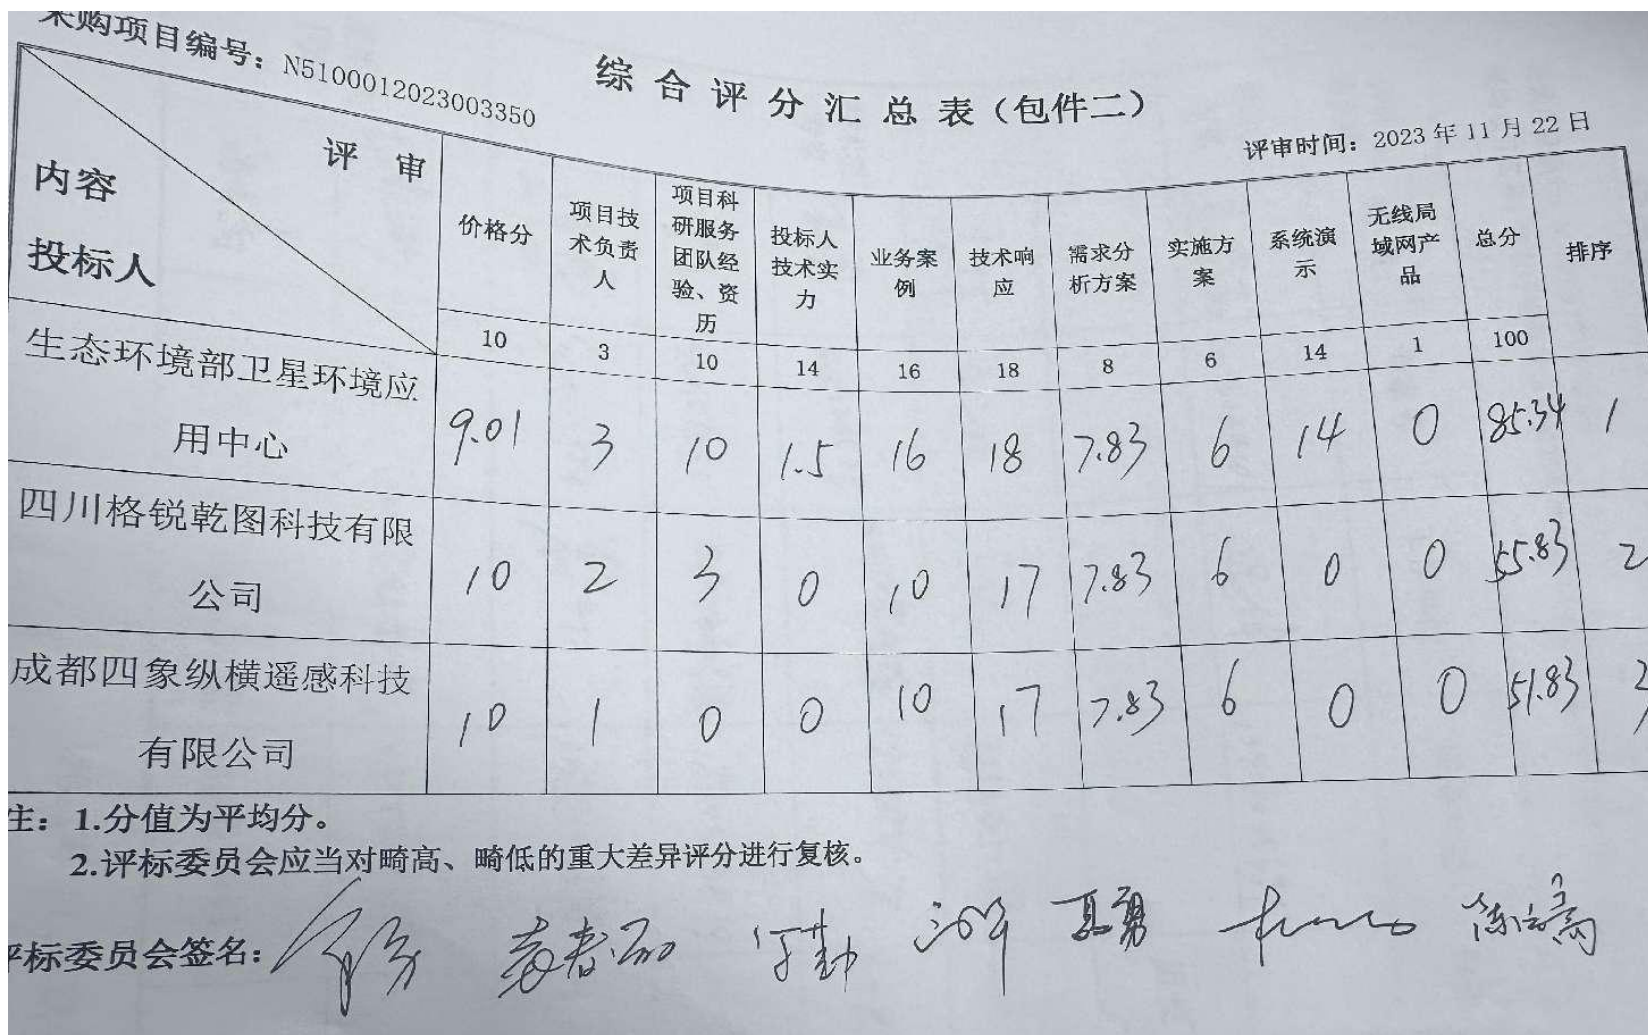 采购项目编号：N5100012023003350
综合评分汇总表（包件二）
评审时间：2023年11月22日
评审
内容
投标人
价格分
项目技术负责人
项目科研服务团队经验、资历
投标人技术实力
业务案例
技术响应
需求分析方案
实施方案
系统演示
无线局域网产品
总分
排序
10 3 10 14 16 18 8 6 14 1 100
生态环境部卫星环境应用中心 9.01 3 10 1.5 16 18 7.83 6 14 0 85.34 1
四川格锐乾图科技有限公司 10 2 3 0 10 17 7.83 6 0 0 55.83 2
成都四象纵横遥感科技有限公司 10 1 0 0 10 17 7.83 6 0 0 51.83 3
注：1.分值为平均分。
2.评标委员会应当对畸高、畸低的重大差异评分进行复核。
评标委员会签名：